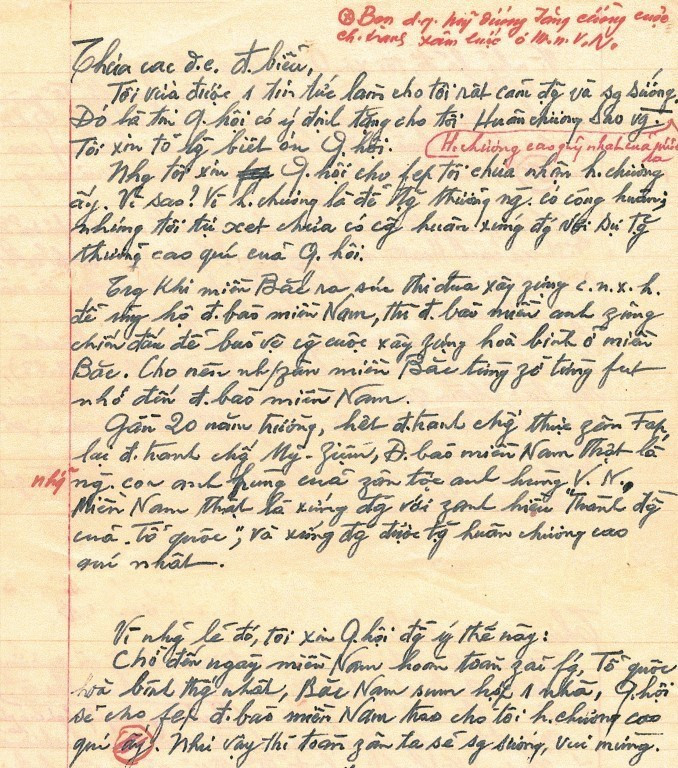 ⊗ Bọn đ.q. Mỹ đương tăng cường cuộc
ch.tranh xâm lược ở m.n.V.N.
Thưa các đ.c. đ.biểu,
Tôi vừa được 1 tin tức làm cho tôi rất cảm độ̣g và sg sướng.
Đó là tin Q.hội có ý định tặng cho tôi Huân chương Sao vg.
H.chương cao quý nhất của nước ta
Tôi xin tỏ lg biết ơn Q.hội.
Nhg tôi xin Q.hội cho fep tôi chưa nhận h.chương
ấy. Vì sao? Vì h.chương là để tặg thưởng ng. có công huân;
nhưng tôi tự xét chưa có cg huân xứng đg với sự tặg
thưởng cao quí của Q.hội.
Trg khi miền Bắc ra sức thi đua xây zựng c.n.x.h.
để ủng hộ đ.bào miền Nam, thì đ.bào miền anh zũng
chiến đấu để bảo vệ cg cuộc xây zựng hoà bình ở miền
Bắc. Cho nên nh/zân miền Bắc từng zờ từng fut
nhớ đến đ.bào miền Nam.
Gần 20 năm trường, hết đ.tranh chg thực zân Fap,
lại đ.tranh chg Mỹ-Ziệm, Đ.bào miền Nam thật là
nhg
ng. con anh hùng của zân tộc anh hùng V.N.
Miền Nam thật là xứng đg với zanh hiệu "Thành đg
của Tổ quốc", và xứng đg được tặg huân chương cao
quí nhất.
Vì nhg lẽ đó, tôi xin Q.hội đg ý thế này:
Chờ đến ngày miền Nam hoàn toàn zải fg, Tổ quốc
hoà bình thg nhất, Bắc Nam sum họp 1 nhà, Q.hội
sẽ cho fep đ.bào miền Nam trao cho tôi h.chương cao
quí ấy. Như vậy thì toàn zân ta sẽ sg sướng, vui mừng.